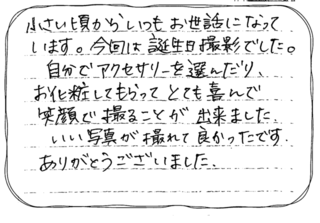 小さい頃からいつもお世話になって
います。今回は誕生日撮影でした。
自分でアクセサリーを選んだり、
お化粧してもらってとても喜んで
笑顔で撮ることが出来ました。
いい写真が撮れて良かったです
ありがとうございました。